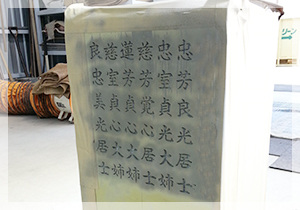 忠芳良光居士
忠室貞光大姉
慈芳覚心居士
蓮芳貞心大姉
慈室貞心大姉
良忠美光居士
リーン